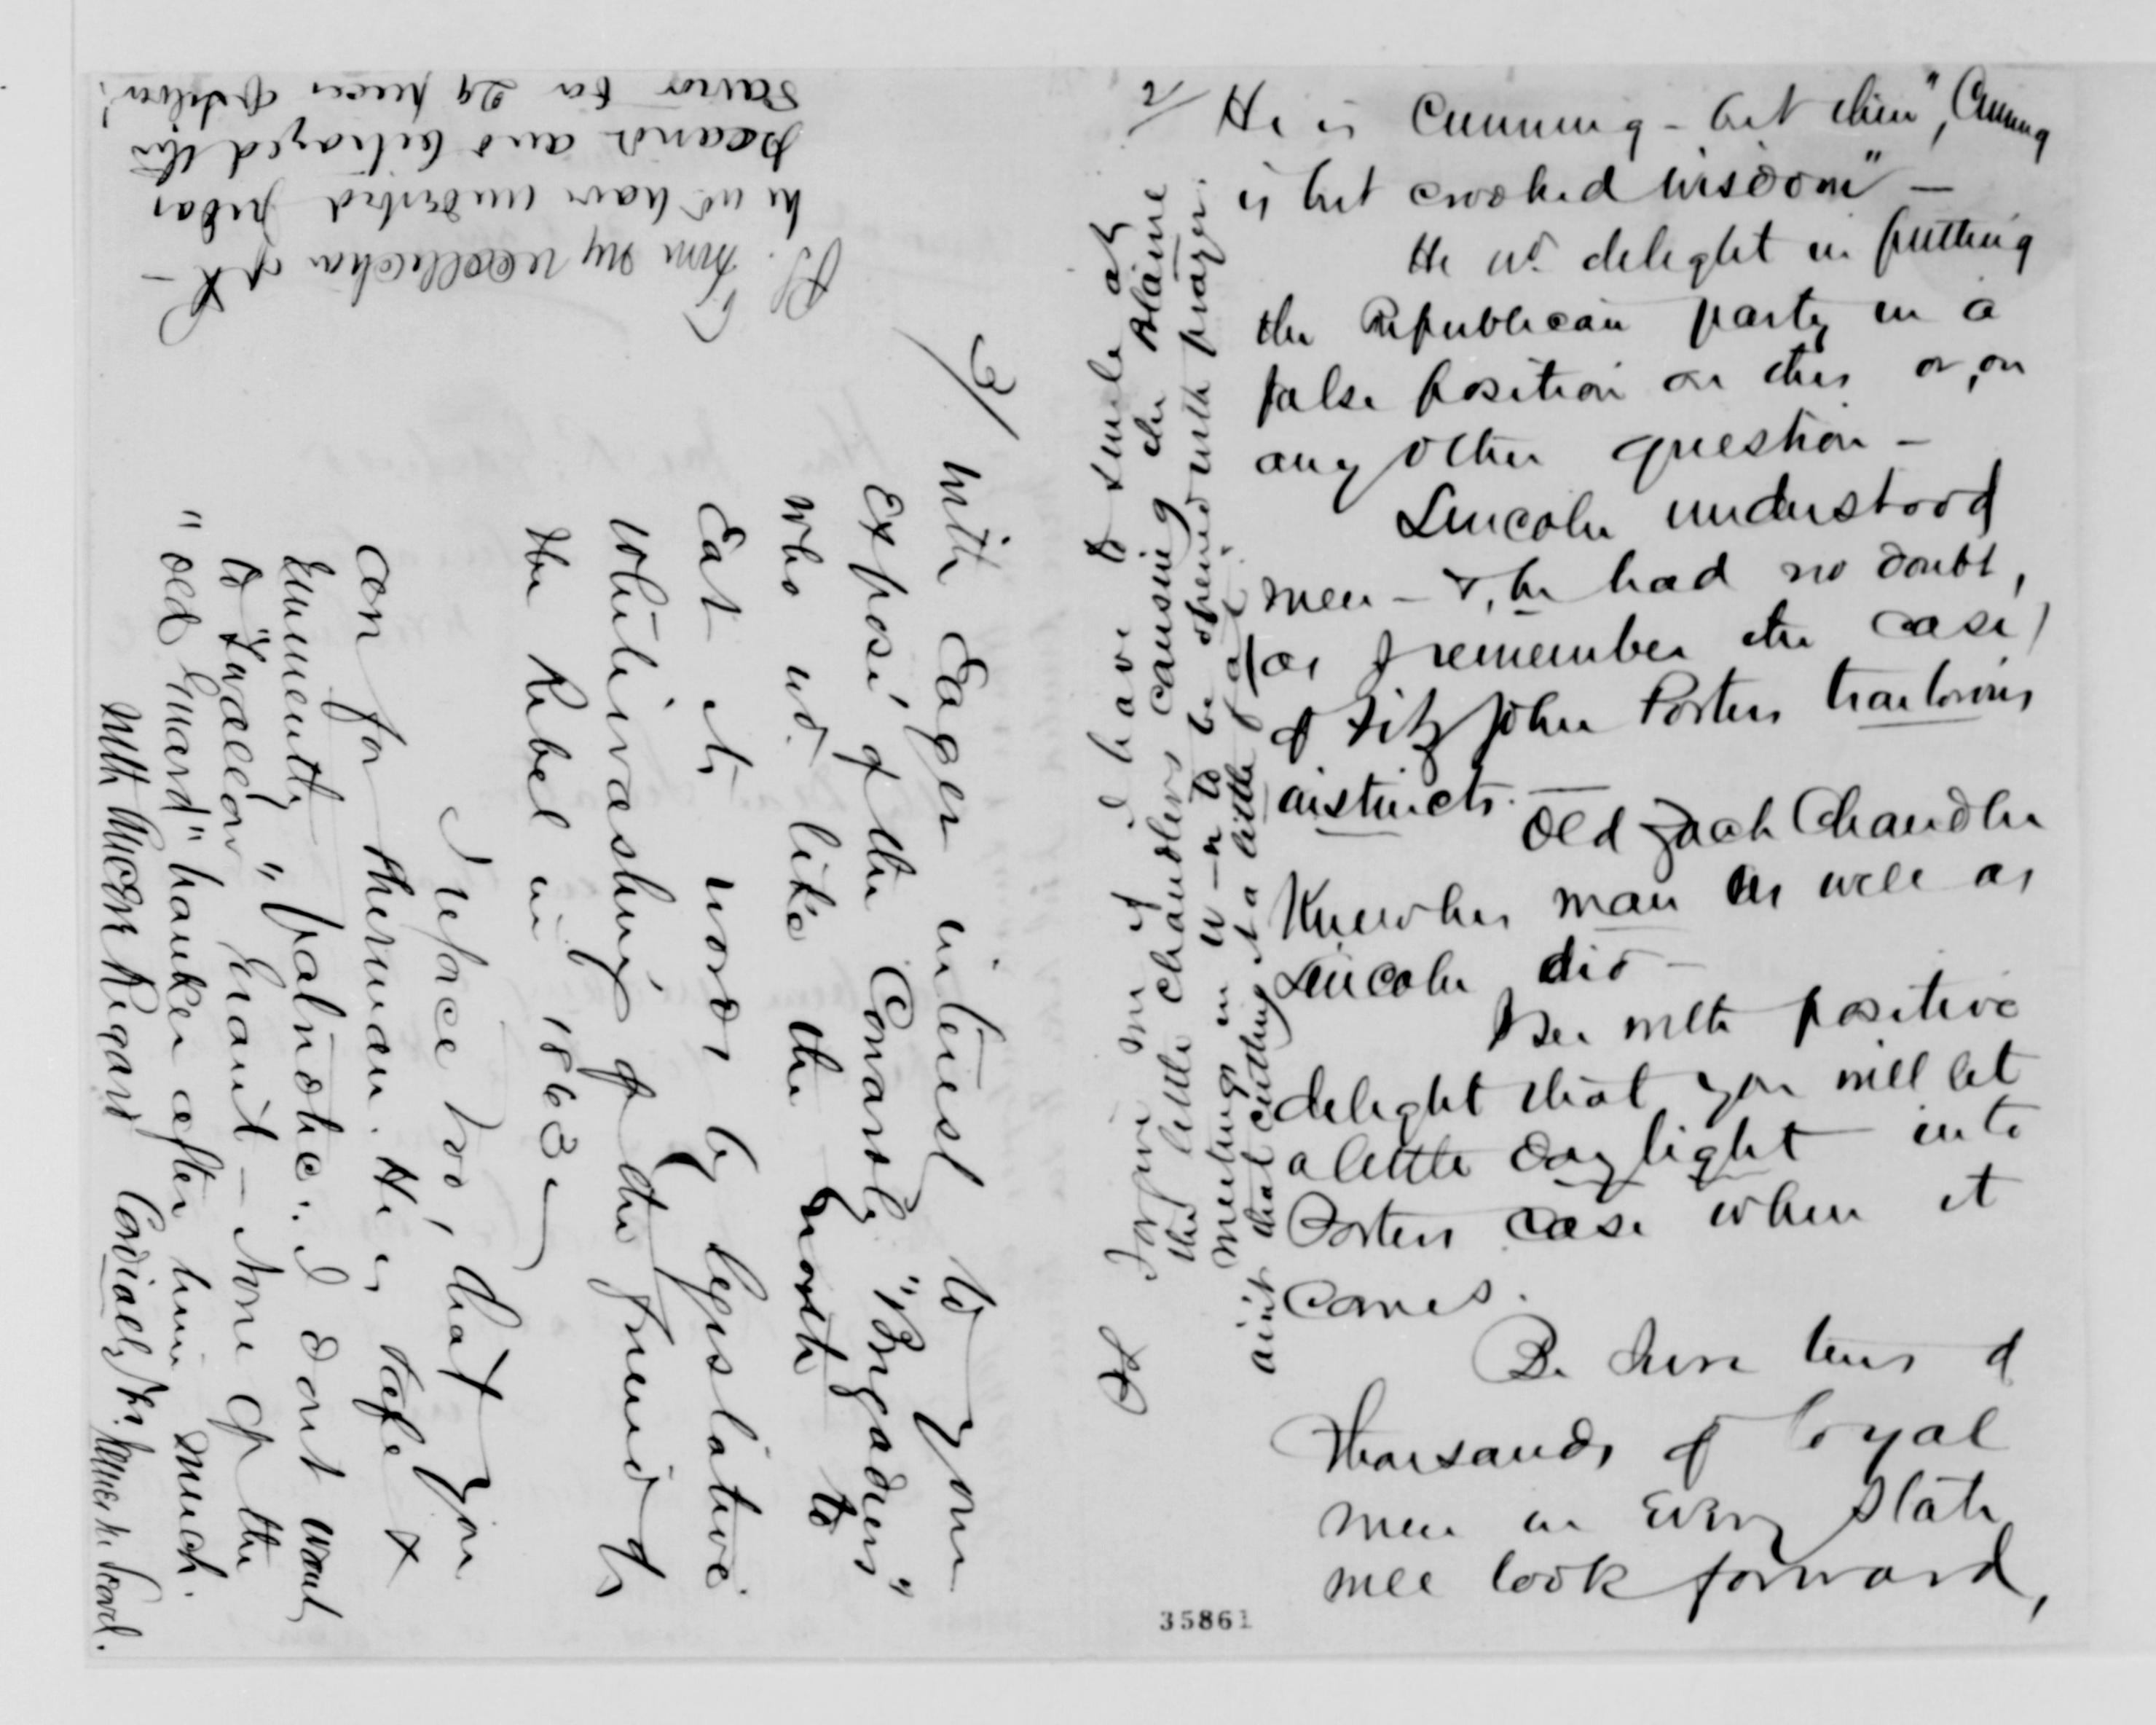 2/ He is Cunning - but then, "Cunning
is but crooked wisdom" -
He wd. delight in putting
the Republican party in a
false position on this or, on
any other question -
Lincoln understood
men - & he had no doubt,
(as I remember the case)
of Fitz John Porters traitorous
instincts. -
Old Zach Chandler
Knew his man as well as
Lincoln did -
See with positive
delight that you will let
a little daylight into
Porters case when it
comes.
Be sure tens of
thousands of loyal
men in Every State
will look forward,
35861
3/
with Eager interest to your
Exposé of the Comrosly "Brigadiers"
who wd. like the North to
Eat its words by legislative
whitewashing of the friend of
the Rebel in 1863 -
I rejoice too, that you
can for Sherman. He is safe &
Eminently "patriotic". I dont want
to "swallow" Grant - None of the
"old Guard" hanker after him much.
With Sincere Regard Cordially Yrs.
PS. From my recollection of P -
he wd have underbid Judas
and betrayed his
Savior for 29 pieces of silver!
Forgive me if I have to smile at
the little Chandlers causing the Blaine
meetings in W-n to be opened with prayer.
aint that cutting it a little fat?